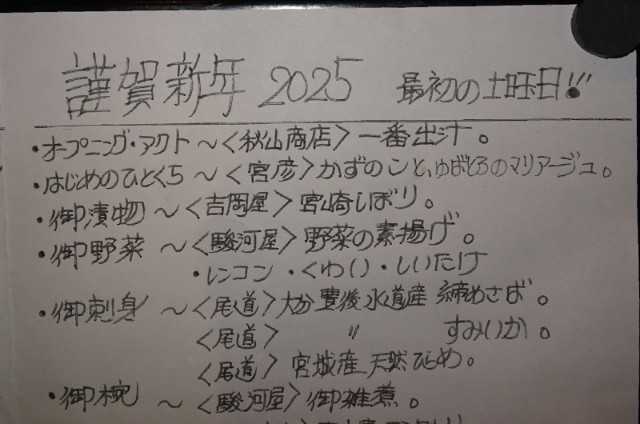 謹賀新年 2025 最初の土曜日!!!
・オープニング・アクト～〈秋山商店〉一番出汁。
・はじめのひとくち～〈宮彦〉かずのこと、ゆばとろのマリアージュ。
・御漬物～〈吉岡屋〉宮崎しぼり。
・御野菜～〈駿河屋〉野菜の素揚げ。
・レンコン・くわい・しいたけ
・御刺身～〈尾道〉大分豊後水道産 締めさば。
〈尾道〉 〃 すみいか。
〈尾道〉宮城産 天然ひらめ。
・御椀～〈駿河屋〉御雑煮。